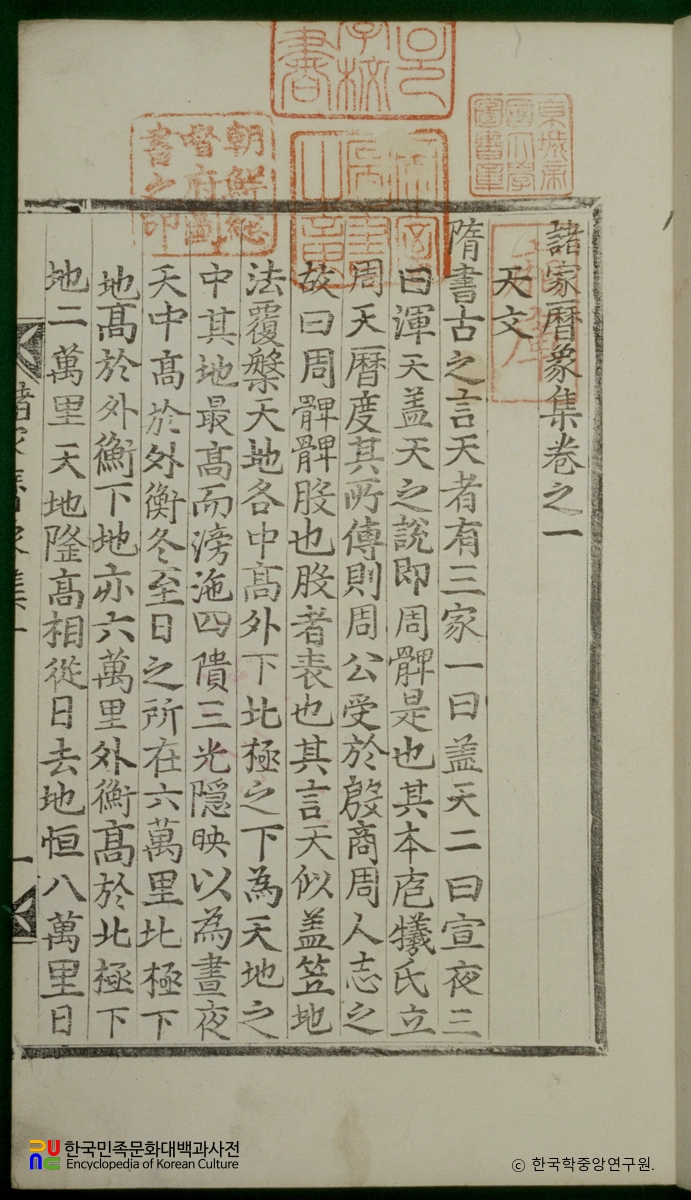 諸家曆象集卷之一
天文
隋書古之言天者有三家一曰盖天二曰宣夜三
曰渾天盖天之說即周髀是也其本庖犧氏立
周天曆度其所傳則周公受於殷商周人志之
故曰周髀髀股也股者表也其言天似盖笠地
法覆槃天地各中高外下北極之下為天地之
中其地最高而滂沲四隤三光隱映以為晝夜
天中高於外衡冬至日之所在六萬里北極下
地高於外衡下地亦六萬里外衡高於北極下
地二萬里天地隆高相從日去地恒八萬里日
諸家曆象集一
一
朝鮮總
督府圖
書之印
京城帝
國大學
圖書章
한국민족문화대백과사전
Encyclopedia of Korean Culture
ⓒ 한국학중앙연구원.